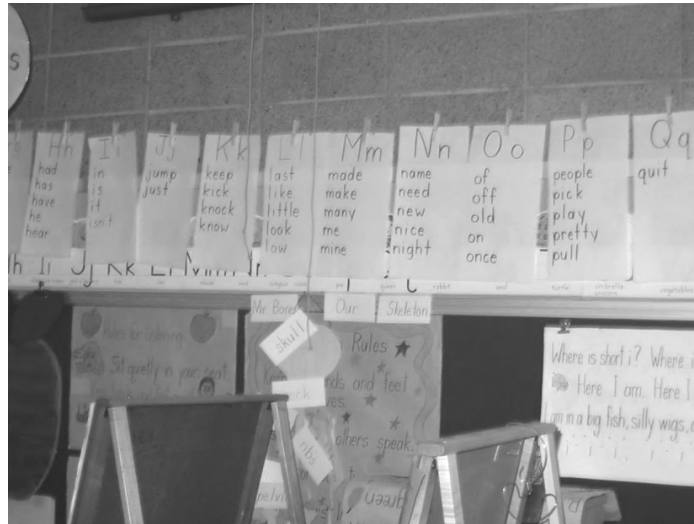 s
Hh
had
has
have
he
hear
Ii
in
is
it
isn't
Jj
jump
just
Kk
keep
kick
knock
know
Ll
last
like
little
look
low
Mm
made
make
many
me
mine
Nn
name
need
new
nice
night
Oo
of
off
old
on
once
Pp
people
pick
play
pretty
pull
Qq
quit
Ii Jj Kk Ll Mm
rabbit
turtle
umbrella
vegetables
Our Skeleton
skull
ribs
Rules for listening
Sit quietly in your seat.
Rules
and feet
others speak.
green
Where is short i? Where i
Here I am. Here I
am in a big fish, silly wigs,